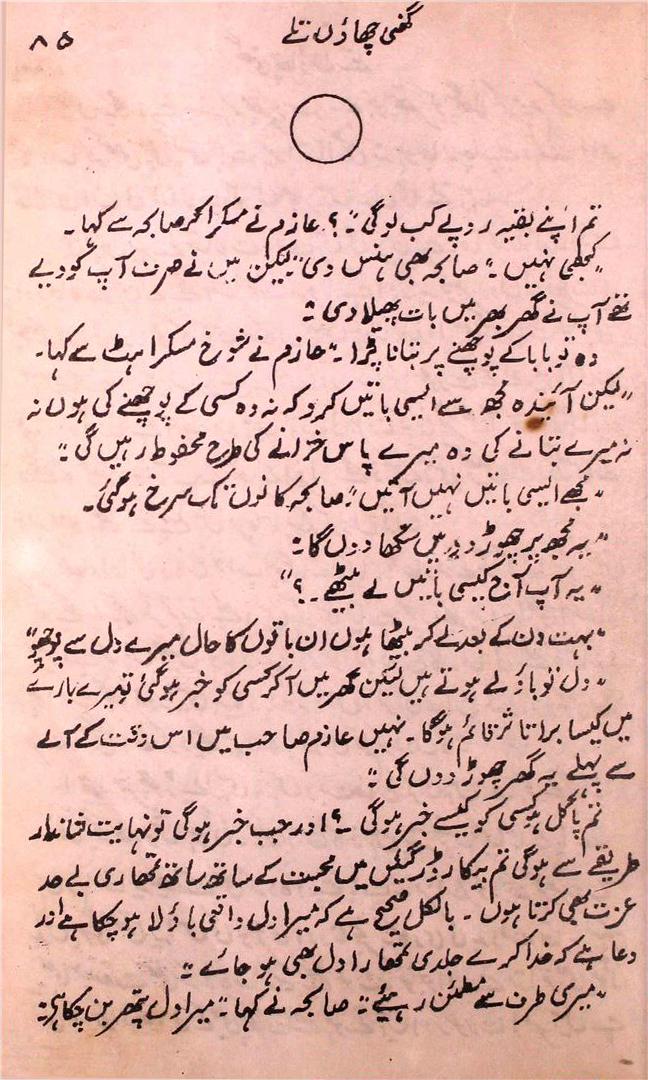 گھنی چھاؤں تلے
۸۵
تم اپنے بقیہ روپے کب لوگی ؟" عازم نے مسکرا کر صابحہ سے کہا۔
"کبھی نہیں" صابحہ بھی ہنس دی "لیکن میں نے صرف آپ کو دیے
تھے آپ نے گھر بھر میں بات پھیلا دی"
وہ تو بابا کے پوچھنے پر بتانا پڑا۔" عازم نے شوخ مسکراہٹ سے کہا۔
"لیکن آئیندہ مجھ سے ایسی باتیں کرو کہ نہ وہ کسی کے پوچھنے کی ہوں نہ
نہ میرے بتانے کی وہ میرے پاس خزانے کی طرح محفوظ رہیں گی"
"مجھے ایسی باتیں نہیں آتیں" صابحہ کانوں تک سرخ ہوگئی۔
"یہ مجھ پر چھوڑ دو میں سکھا دوں گا"
"یہ آپ آج کیسی باتیں لے بیٹھے۔؟"
"بہت دن کے بعد لے کر بیٹھا ہوں ان باتوں کا حال میرے دل سے پوچھو"
"دل تو باؤلے ہوتے ہیں لیکن گھر میں آکر کسی کو خبر ہوگئی تو میرے بارے
میں کیسا برا تاثر قائم ہوگا۔ نہیں عازم صاحب میں اس وقت کے آنے
سے پہلے یہ گھر چھوڑ دوں گی"
تم پاگل ہو کسی کو کیسے خبر ہوگی ؟ اور جب خبر ہوگی تو نہایت شاندار
طریقے سے ہوگی تم بیکار ڈر گئیں میں محبت کے ساتھ ساتھ تمھاری بے حد
عزت بھی کرتا ہوں۔ بالکل صحیح ہے کہ میرا دل واقعی باؤلا ہو چکا ہے اور
دعا ہے کہ خدا کرے جلدی تمھارا دل بھی ہو جائے"
"میری طرف سے مطمئن رہیئے" صابحہ نے کہا "میرا دل پتھر بن چکا ہے"